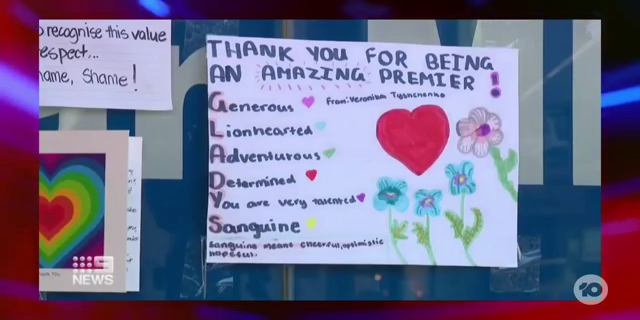 o recognise this value
espect...
hame, Shame!
THANK YOU FOR BEING
AN AMAZING PREMIER!
From: Veronika Tyshchenko
Generous
Lionhearted
Adventurous
Determined
You are very talented
Sanguine
Sanguine means cheerful, optimistic
9 NEWS
10